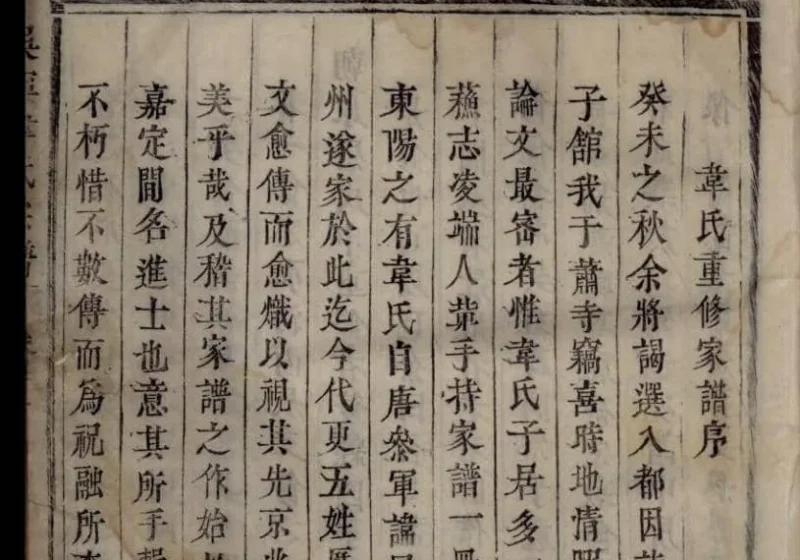 韋氏重修家譜序
癸未之秋余將謁選入都因
子舘我于蕭寺竊喜時地情
論文最審者惟韋氏子居多
蘓志凌端人輩手持家譜一
東陽之有韋氏自唐叅軍諱
州遂家於此迄今代更五姓
文愈傳而愈熾以視其先京
美乎哉及稽其家譜之作始
嘉定間名進士也意其所手
不朽惜不數傳而為祝融所